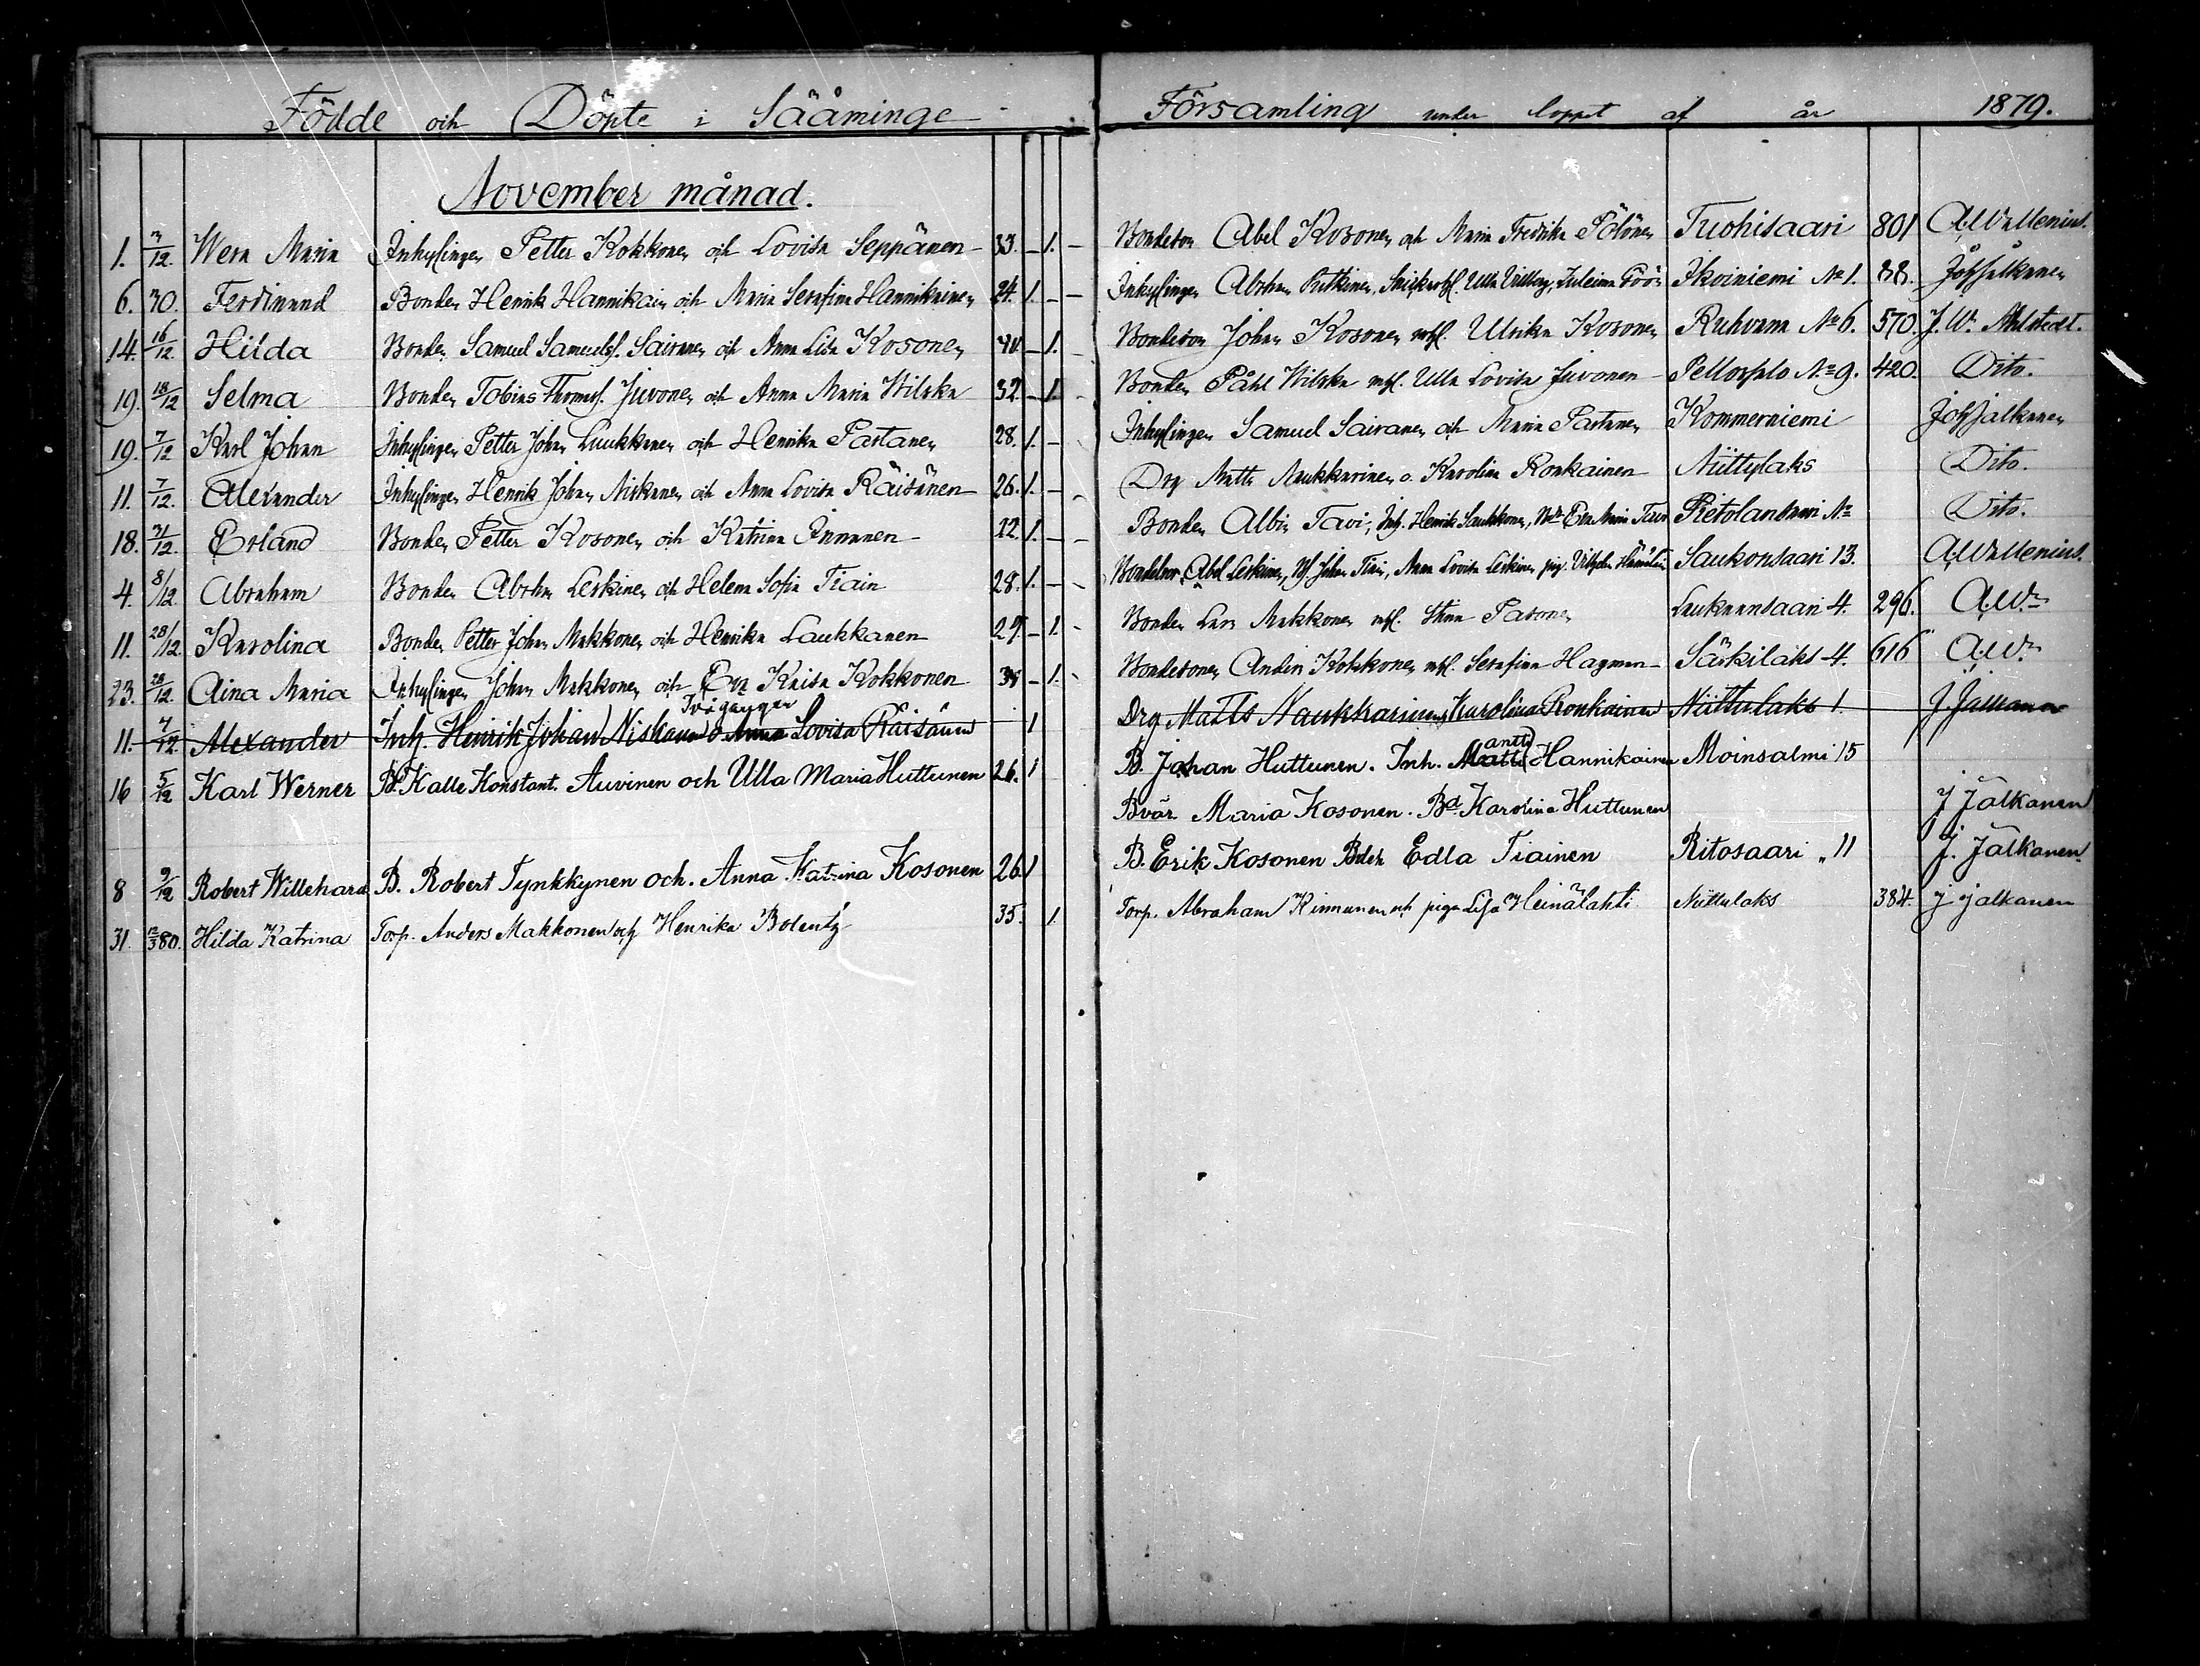 Födde och Döpte i Sääminge Församling under loppet af år 1879.
November månad.
1. 3/12. Wera Maria Inhysingen Petter Kokkonen och Lovisa Seppänen 33. – 1. – Bondeson Abel Kosonen och Maria Fredrika Pölönen Tuohisaari 801 A Wallenius.
6. 30. Ferdinand Bonden Henrik Hannikain och Maria Serafina Hannikainen 24. 1. – – Inhysingen Abraham Putkinen, Ulla Villberg, Ikoiniemi No 1. 88. Joh Jalkanen
14. 16/12 Hilda Bonden Samuel Samuelss. Sairanen och Anna Lisa Kosonen 40 – 1. – Bondeson Johan Kosonen mhl. Ulrika Kosonen Ruhvana No 6. 570. J. W. Ahlstedt.
19. 18/12 Selma Bonden Tobias Thomass. Juvonen och Anna Maria Wilska 32. – 1. – Bonden Påhl Wilska mhl. Ulla Lovisa Juvonen Pellossalo No 9. 420. Dito.
19. 7/12 Karl Johan Inhysingen Petter Johan Luukkanen och Henrika Partanen 28. 1. – Inhysingen Samuel Sairanen och Maria Partanen Kommerniemi Joh Jalkanen
11. 7/12. Alexander Inhysingen Henrik Johan Niskanen och Anna Lovisa Räisänen 26. 1. – – Drg Matts Naukkarinen o. Karolina Ronkainen Niittylaks Dito.
18. 31/12. Erland Bonden Petter Kosonen och Katrina Innanen 22. 1. – – Bonden Albin Tavi, Inh. Henrik Laukkanen, Eva Maria Tavi Pietolansaari No Dito.
4. 8/12. Abraham Bonden Abraham Leskinen och Helena Sofia Tiain 28. 1. – – Bondeson Abel Leskinen, Johan Tiain, Anna Lovisa Leskinen pig. Saukonsaari 13. A Wallenius.
11. 28/12. Karolina Bonden Petter Johan Makkonen och Henrika Laukkanen 29. – 1. – Bonden Lars Makkonen mhl. Stina Pasonen Laukansaari 4. 296. A.W.
23. 28/12. Aina Maria Inhysingen Johan Makkonen och Eva Kaisa Kokkonen 34 – 1. – Bondesonen Andin Kokkonen mhl. Serafina Hagman Särkilaks 4. 616 A.W.
Två gånger
11. 7/12. Alexander Inh. Henrik Johan Niskanen o Anna Lovisa Räisänen 1 Drg Matts Naukkarinen, Karolina Ronkainen Niittulaks 1. J Jalkanen
16 5/12 Karl Werner B. Kalle Konstant. Auvinen och Ulla Maria Huttunen 26. 1 B. Johan Huttunen. Inh. Matts (antti) Hannikainen Moinsalmi 15
Bvär. Maria Kosonen. Bd. Karolina Huttunen J Jalkanen
8 9/12 Robert Willehard B. Robert Tynkkynen och. Anna Katrina Kosonen 26. 1 B. Erik Kosonen Bdtr Edla Tiainen Ritosaari „ 11 J. Jalkanen.
31. 12/3 80. Hilda Katrina Torp. Anders Makkonen och Henrika Bolentz 35. 1. Torp. Abraham Kinnunen och piga Lisa Heinälahti Niittulaks 384. J Jalkanen